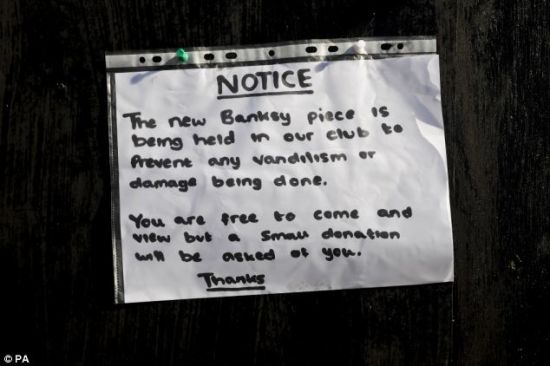 NOTICE
The new Banksy piece is
being held in our club to
Prevent any vandilism or
damage being done.
You are free to come and
view but a small donation
will be asked of you.
Thanks
© PA